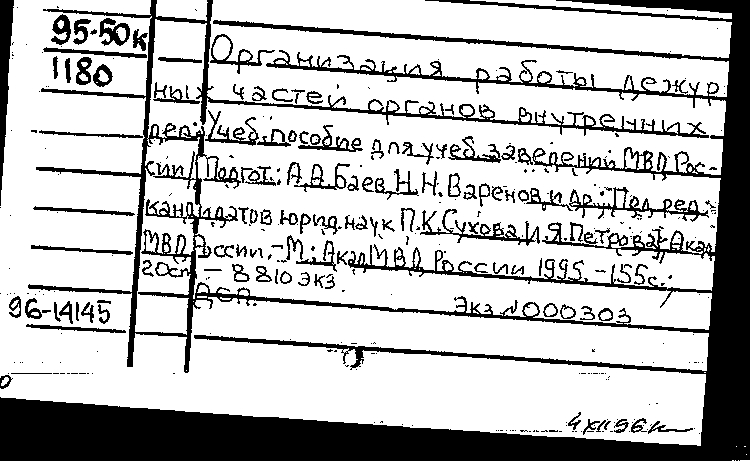 95-50к
1180
Организация работы дежур
ных частей органов внутренних
дел: Учеб. пособие для учеб. заведений МВД Рос-
сии / Подгот.: А.А. Баев, Н.Н. Варенов и др.; Под ред.
кандидатов юрид. наук П.К. Сухова, И.Я. Петрова; Акад.
МВД России. – М.: Акад МВД России, 1995. – 155с.;
20см – 8810 экз.
ДСП. Экз № 000303
96-14145
4 XII 96